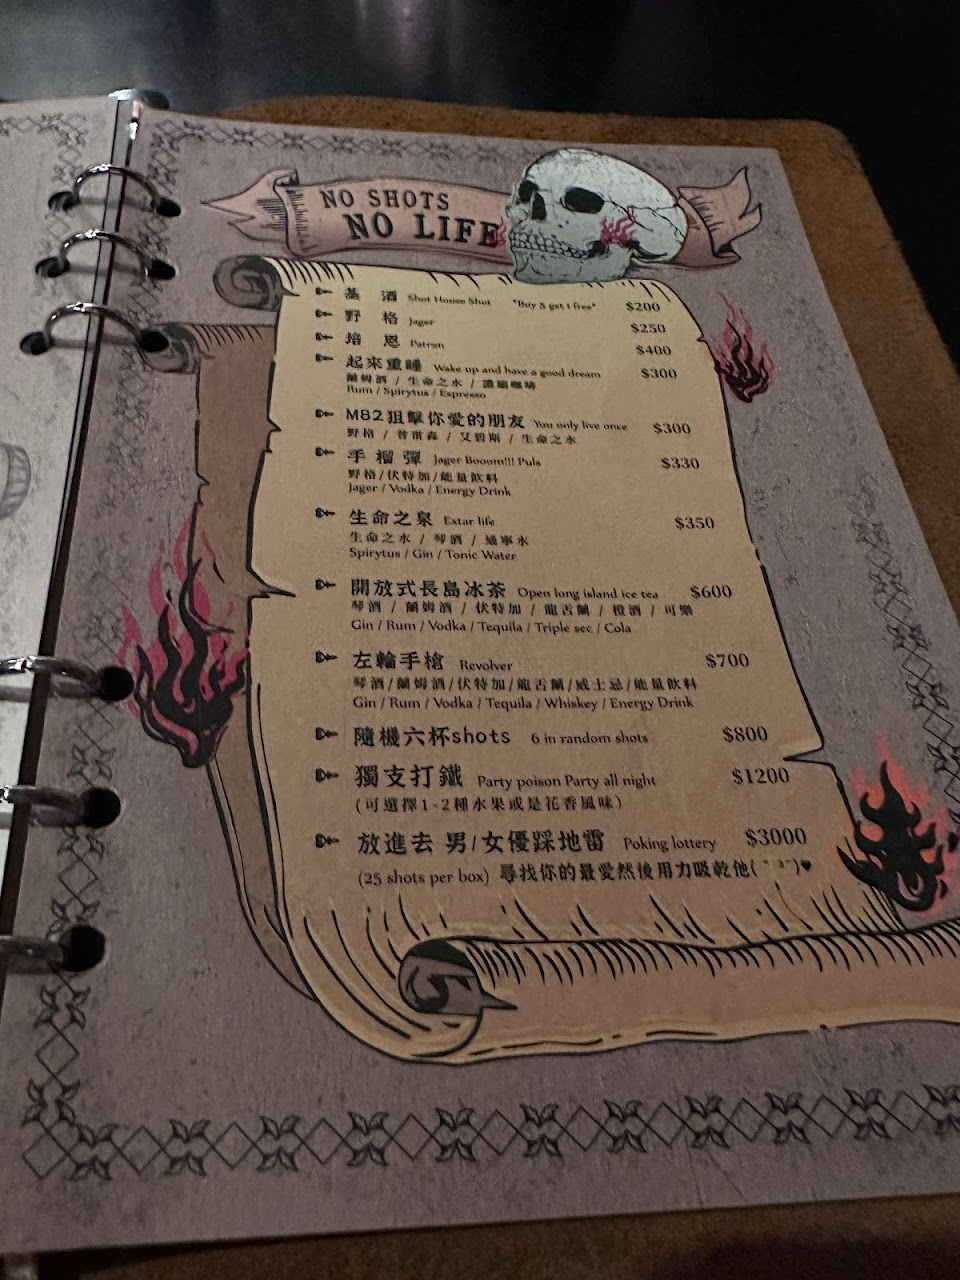 NO SHOTS
NO LIFE
基 酒 Shot House Shot "Buy 5 get 1 free" $200
野 格 Jager $250
培 恩 Patron $400
起來重睡 Wake up and have a good dream $300
蘭姆酒 / 生命之水 / 濃縮咖啡
Rum / Spirytus / Espresso
M82狙擊你愛的朋友 You only live once $300
野格 / 普雷森 / 艾碧斯 / 生命之水
手 榴 彈 Jager Booom!!! Puls $330
野格/伏特加/能量飲料
Jager / Vodka / Energy Drink
生命之泉 Extar life $350
生命之水 / 琴酒 / 通寧水
Spirytus / Gin / Tonic Water
開放式長島冰茶 Open long island ice tea $600
琴酒 / 蘭姆酒 / 伏特加 / 龍舌蘭 / 橙酒 / 可樂
Gin / Rum / Vodka / Tequila / Triple sec / Cola
左輪手槍 Revolver $700
琴酒/蘭姆酒/伏特加/龍舌蘭/威士忌/能量飲料
Gin / Rum / Vodka / Tequila / Whiskey / Energy Drink
隨機六杯shots 6 in random shots $800
獨支打鐵 Party poison Party all night $1200
(可選擇1-2種水果或是花香風味)
放進去 男/女優踩地雷 Poking lottery $3000
(25 shots per box) 尋找你的最愛然後用力吸乾他(˘ ³˘)♥